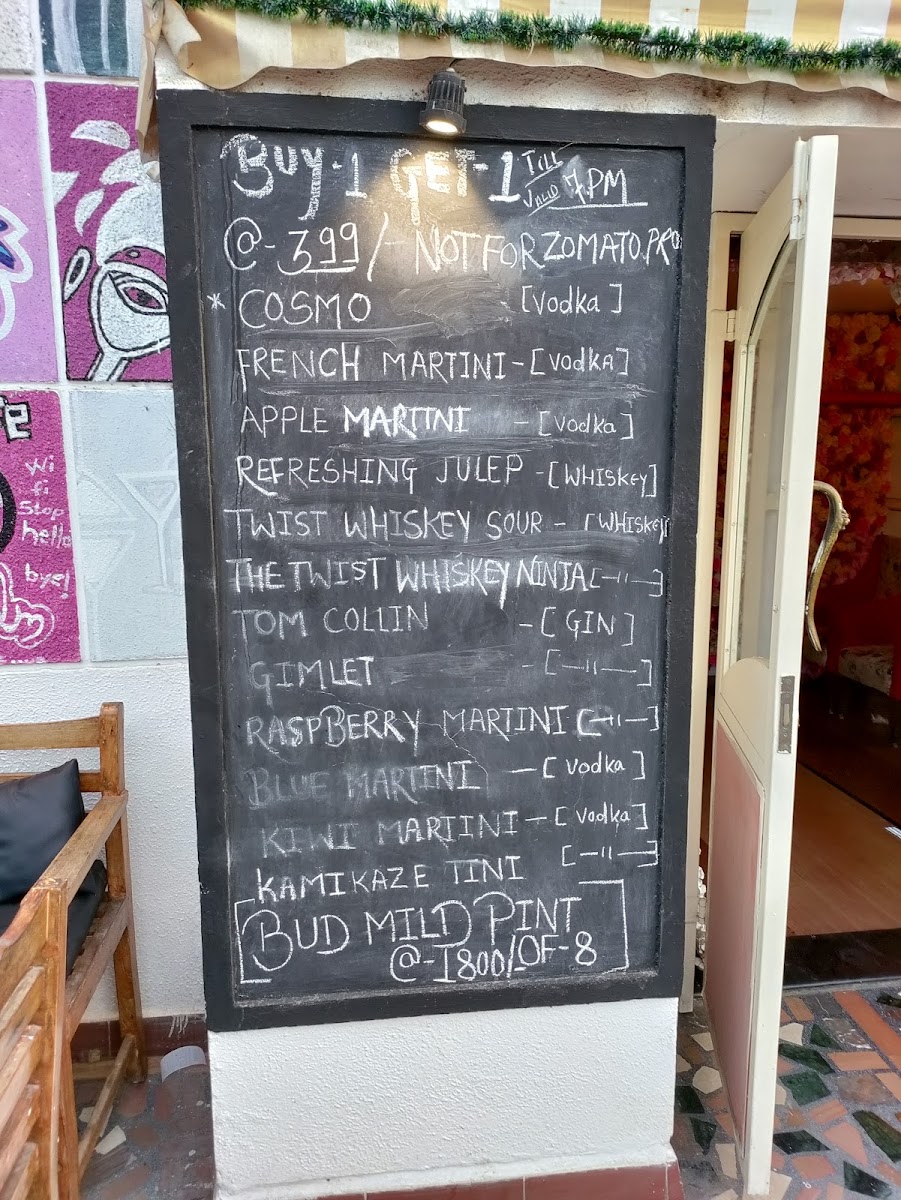 BUY-1 GET-1 TILL
VALID 7.PM
@-399/- NOT FOR ZOMATO.PRO
* COSMO [Vodka]
FRENCH MARTINI-[VodkA]
APPLE MARTINI -[Vodka]
REFRESHING JULEP -[WHISKEY]
TWIST WHISKEY SOUR - [WHISKEY]
THE TWIST WHISKEY NINJA[—"—]
TOM COLLIN -[GIN]
GIMLET -[—"—]
RASPBERRY MARTINI [—"—]
BLUE MARTINI -[Vodka]
KIWI MARTINI-[Vodka]
KAMIKAZE TINI [—"—]
BUD MILD PINT
@-1800/-OF-8
Wi
fi
Stop
hello
bye!